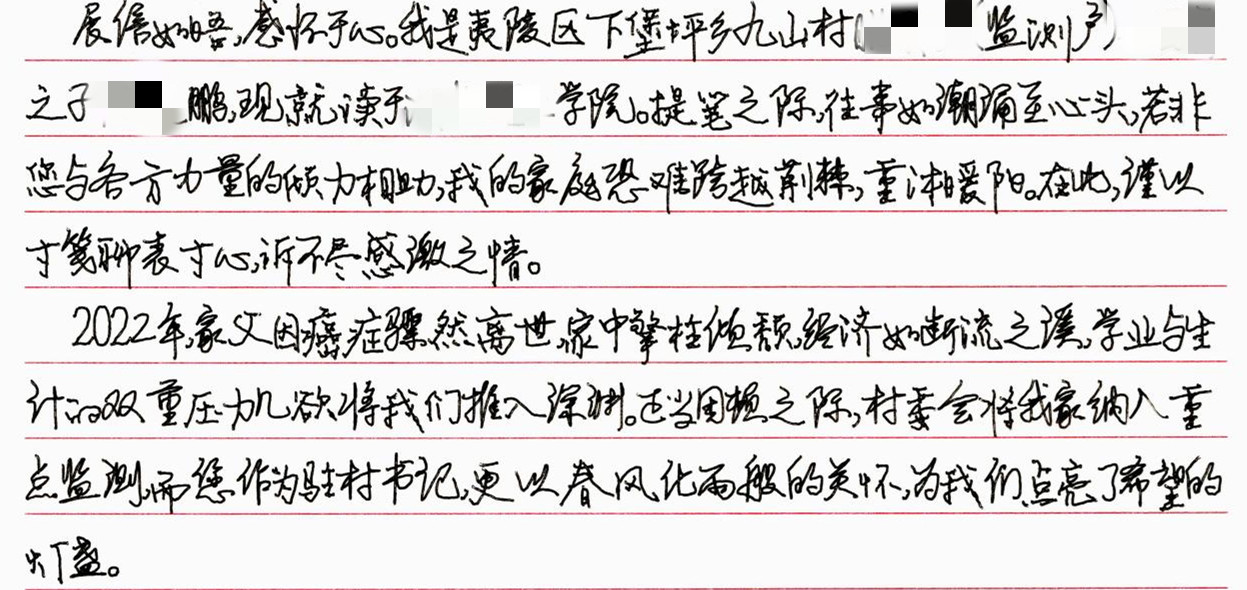 展信如晤,感怀于心。我是夷陵区下堡坪乡九山村(监测户)
之子鹏,现就读于学院。提笔之际,往事如潮涌至心头,若非
您与各方力量的倾力相助,我的家庭恐难跨越荆棘,重沐暖阳。在此,谨以
寸笺聊表寸心,诉不尽感激之情。
2022年,家父因癌症骤然离世,家中擎柱倾颓,经济如断流之溪,学业与生
计的双重压力几欲将我们推入深渊。正当困顿之际,村委会将我家纳入重
点监测,而您作为驻村书记,更以春风化雨般的关怀,为我们点亮了希望的
灯盏。